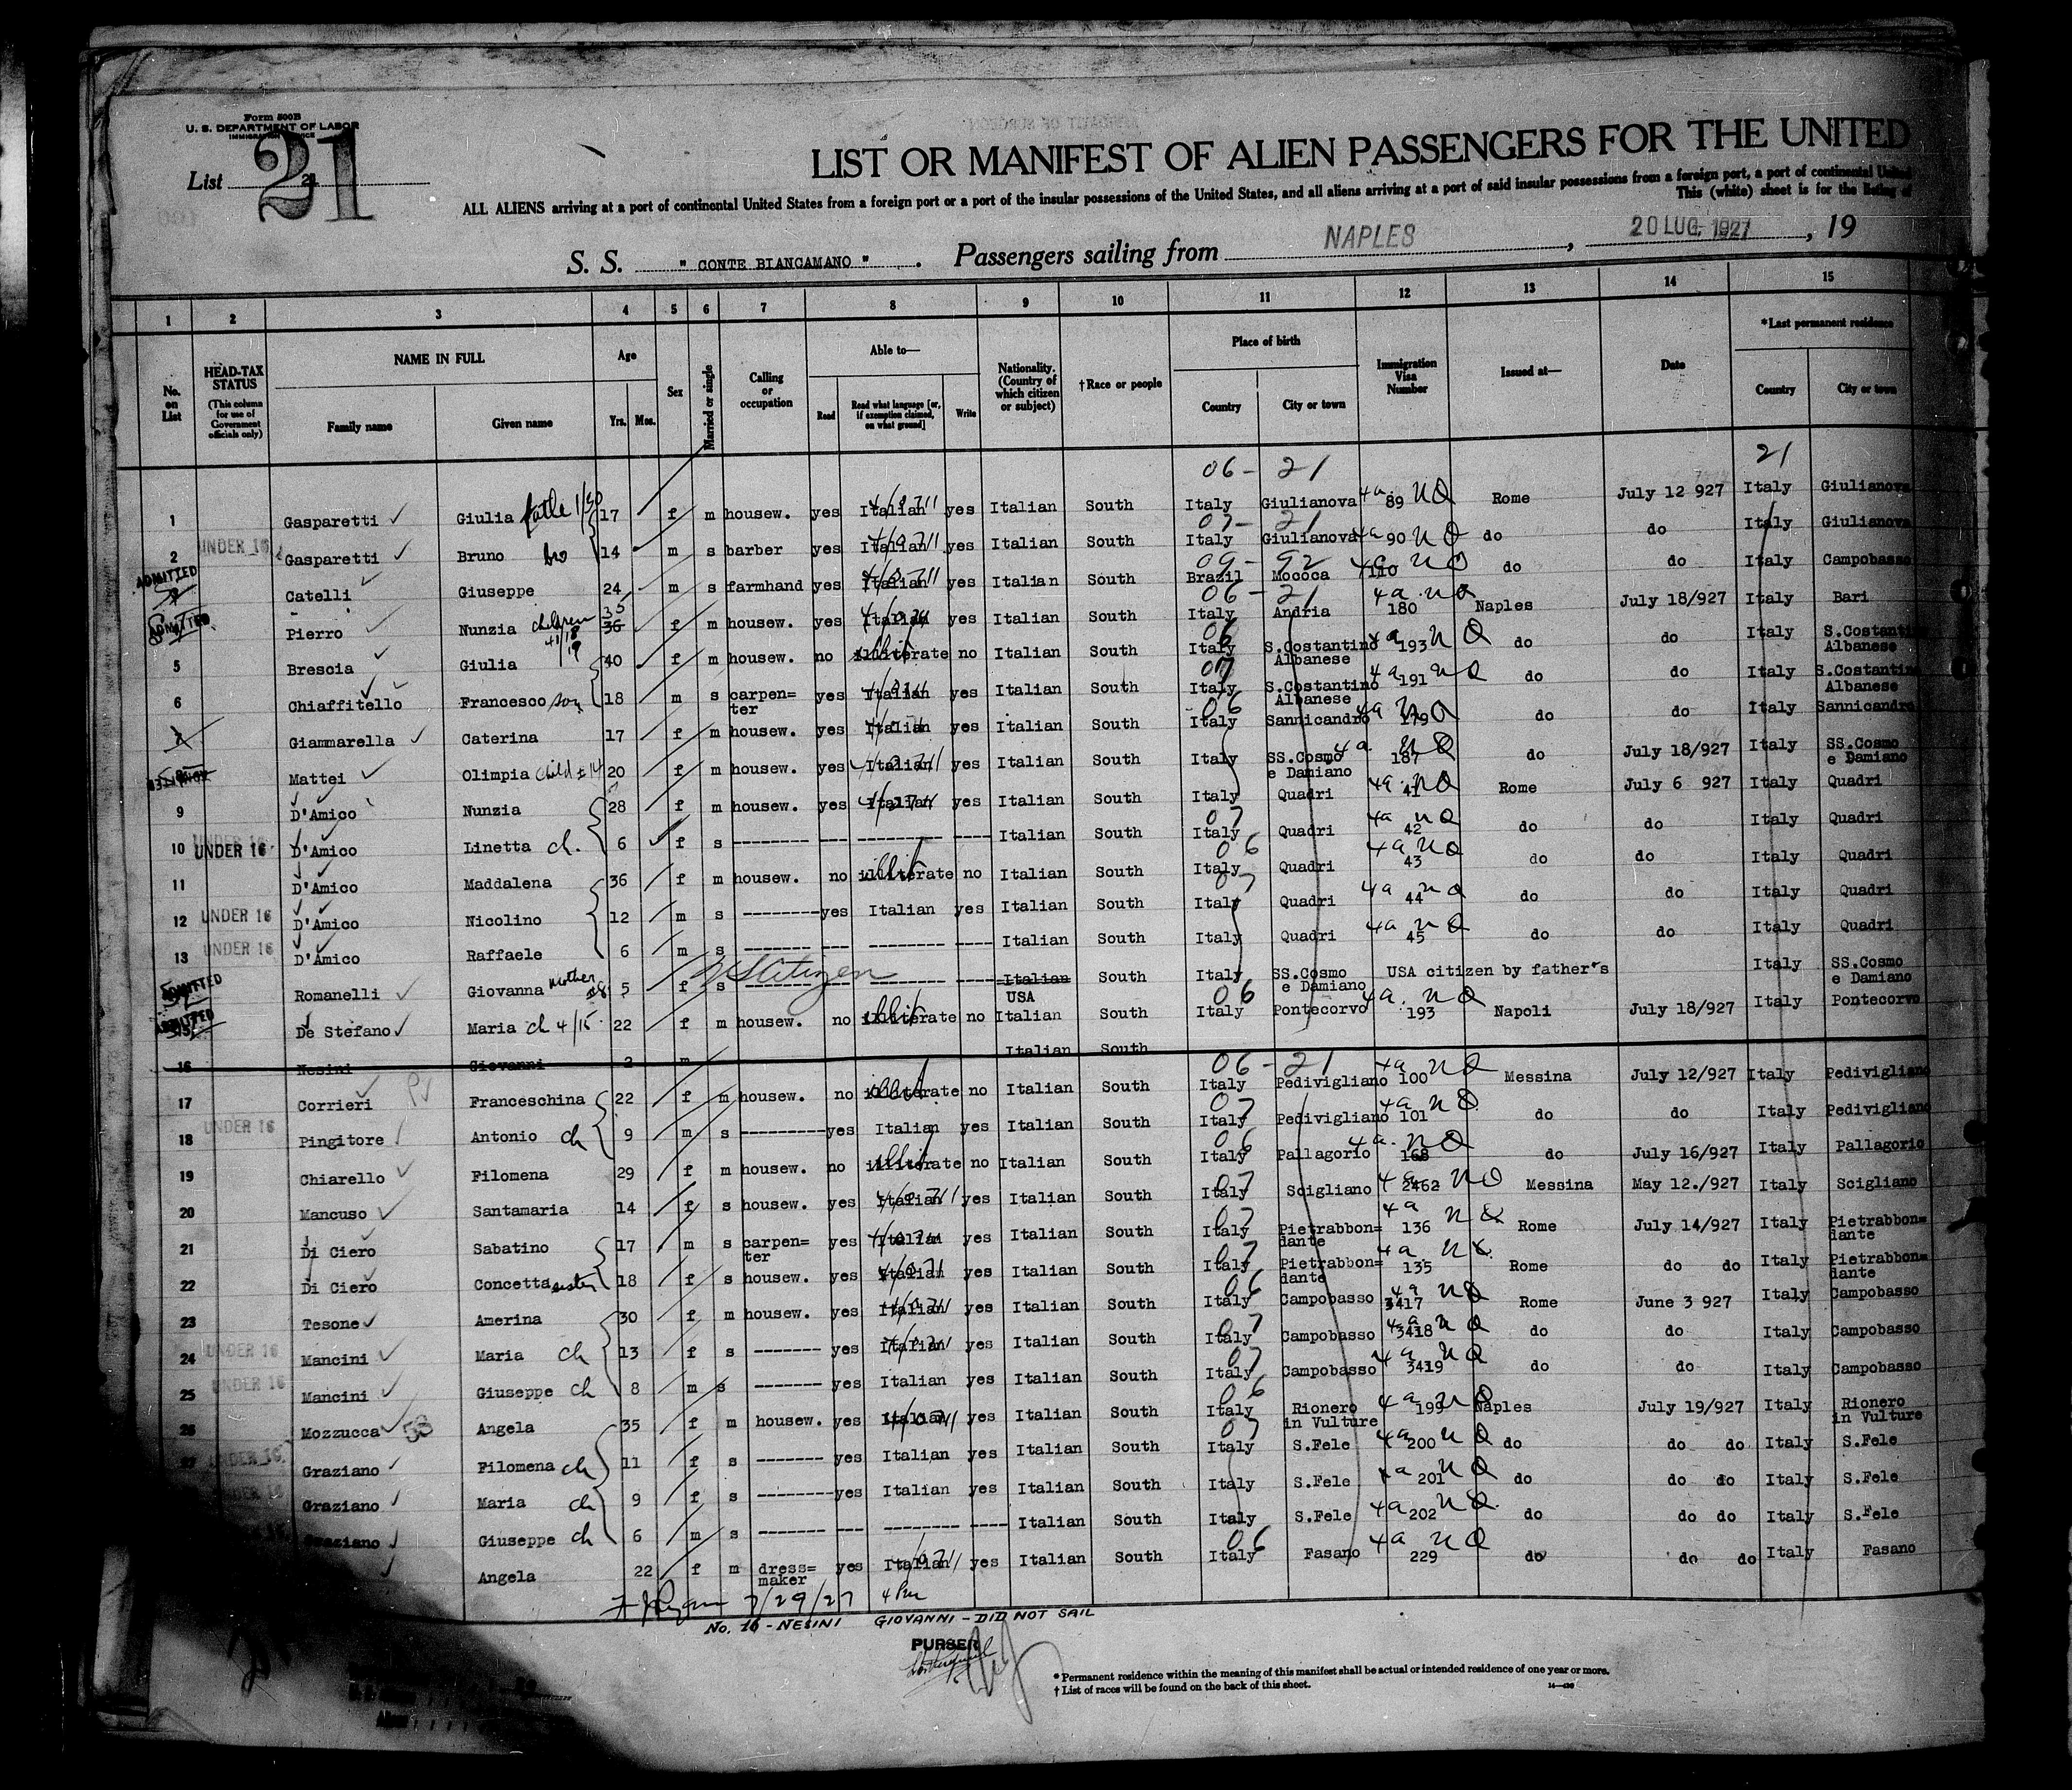 Form 500B
U. S. DEPARTMENT OF LABOR
IMMIGRATION SERVICE
List 21
LIST OR MANIFEST OF ALIEN PASSENGERS FOR THE UNITED
ALL ALIENS arriving at a port of continental United States from a foreign port or a port of the insular possessions of the United States, and all aliens arriving at a port of said insular possessions from a foreign port, a port of continental United
This (white) sheet is for the listing of
S. S. " CONTE BIANCAMANO " . Passengers sailing from NAPLES , 20 LUG. 1927 , 19
1 2 3 4 5 6 7 8 9 10 11 12 13 14 15
No. on List
HEAD-TAX STATUS
(This column for use of Government officials only)
NAME IN FULL
Family name Given name
Age
Yrs. Mos.
Sex
Married or single
Calling or occupation
Able to—
Read Read what language [or, if exemption claimed, on what ground] Write
Nationality. (Country of which citizen or subject)
†Race or people
Place of birth
Country City or town
Immigration Visa Number
Issued at—
Date
*Last permanent residence
Country City or town
06 - 21 21
1 Gasparetti Giulia 17 f m housew. yes Italian yes Italian South Italy Giulianova 4a 89 NQ Rome July 12 927 Italy Giulianova
2 UNDER 16 Gasparetti Bruno bro 14 m s barber yes Italian yes Italian South Italy Giulianova 4a 90 NQ do do Italy Giulianova
ADMITTED Catelli Giuseppe 24 m s farmhand yes Italian yes Italian South Brazil Mococa 110 NQ do do Italy Campobasso
ADMITTED Pierro Nunzia children 35 36 f m housew. yes Italian yes Italian South Italy Andria 4a NQ 180 Naples July 18/927 Italy Bari
5 Brescia Giulia 40 f m housew. no illiterate no Italian South Italy S.Costantino Albanese 4a 193 NQ do do Italy S.Costantino Albanese
6 Chiaffitello Francesco son 18 m s carpen=ter yes Italian yes Italian South Italy S.Costantino Albanese 4a 191 NQ do do Italy S.Costantino Albanese
7 Giammarella Caterina 17 f m housew. yes Italian yes Italian South Italy Sannicandro 4a 179 NQ do do Italy Sannicandro
ADMITTED Mattei Olimpia child 20 f m housew. yes Italian yes Italian South Italy SS.Cosmo e Damiano 4a 187 NQ do July 18/927 Italy SS.Cosmo e Damiano
9 D'Amico Nunzia 28 f m housew. yes Italian yes Italian South Italy Quadri 4a 41 NQ Rome July 6 927 Italy Quadri
10 UNDER 16 D'Amico Linetta ch. 6 f s -------- --- --------- ---- Italian South Italy Quadri 4a NQ 42 do do Italy Quadri
11 D'Amico Maddalena 36 f m housew. no illiterate no Italian South Italy Quadri 4a NQ 43 do do Italy Quadri
12 UNDER 16 D'Amico Nicolino 12 m s --------yes Italian yes Italian South Italy Quadri 4a NQ 44 do do Italy Quadri
13 UNDER 16 D'Amico Raffaele 6 m s ------- --- --------- ---- Italian South Italy Quadri 4a NQ 45 do do Italy Quadri
ADMITTED Romanelli Giovanna mother 5 f s US Citizen Italian USA South Italy SS.Cosmo e Damiano USA citizen by father's Italy SS.Cosmo e Damiano
ADMITTED De Stefano Maria ch 4/15 22 f m housew. no illiterate no Italian South Italy Pontecorvo 4a. NQ 193 Napoli July 18/927 Italy Pontecorvo
16 Nesini Giovanni 2 m Italian South
17 Corrieri Franceschina 22 f m housew. no illiterate no Italian South Italy Pedivigliano 4a 100 NQ Messina July 12/927 Italy Pedivigliano
18 UNDER 16 Pingitore Antonio ch 9 m s ---------yes Italian yes Italian South Italy Pedivigliano 4a 101 NQ do do Italy Pedivigliano
19 Chiarello Filomena 29 f m housew. no illiterate no Italian South Italy Pallagorio 4a. 168 NQ do July 16/927 Italy Pallagorio
20 Mancuso Santamaria 14 f s housew. yes Italian yes Italian South Italy Scigliano 4a 2462 NQ Messina May 12./927 Italy Scigliano
21 Di Ciero Sabatino 17 m s carpen=ter yes Italian yes Italian South Italy Pietrabbon=dante 4a 136 NQ Rome July 14/927 Italy Pietrabbon=dante
22 Di Ciero Concetta sister 18 f s housew. yes Italian yes Italian South Italy Pietrabbon=dante 4a 135 NQ Rome do do Italy Pietrabbon=dante
23 Tesone Amerina 30 f m housew. yes Italian yes Italian South Italy Campobasso 4a 3417 NQ Rome June 3 927 Italy Campobasso
24 UNDER 16 Mancini Maria ch 13 f s ------- yes Italian yes Italian South Italy Campobasso 4a 3418 NQ do do Italy Campobasso
25 UNDER 16 Mancini Giuseppe ch 8 m s ------- yes Italian yes Italian South Italy Campobasso 4a 3419 NQ do do Italy Campobasso
26 Mozzucca Angela 35 f m housew. yes Italian yes Italian South Italy Rionero in Vulture 4a 199 NQ Naples July 19/927 Italy Rionero in Vulture
27 UNDER 16 Graziano Filomena ch 11 f s ------- yes Italian yes Italian South Italy S.Fele 4a 200 NQ do do do Italy S.Fele
UNDER 16 Graziano Maria ch 9 f s --------yes Italian yes Italian South Italy S.Fele 4a 201 NQ do do do Italy S.Fele
Graziano Giuseppe ch 6 m s ------- --- -------- ---- Italian South Italy S.Fele 4a 202 NQ do do do Italy S.Fele
Angela 22 f m dress=maker yes Italian yes Italian South Italy Fasano 4a 229 NQ do do do Italy Fasano
7/29/27
No. 16 - NESINI GIOVANNI - DID NOT SAIL
PURSER
* Permanent residence within the meaning of this manifest shall be actual or intended residence of one year or more.
† List of races will be found on the back of this sheet.